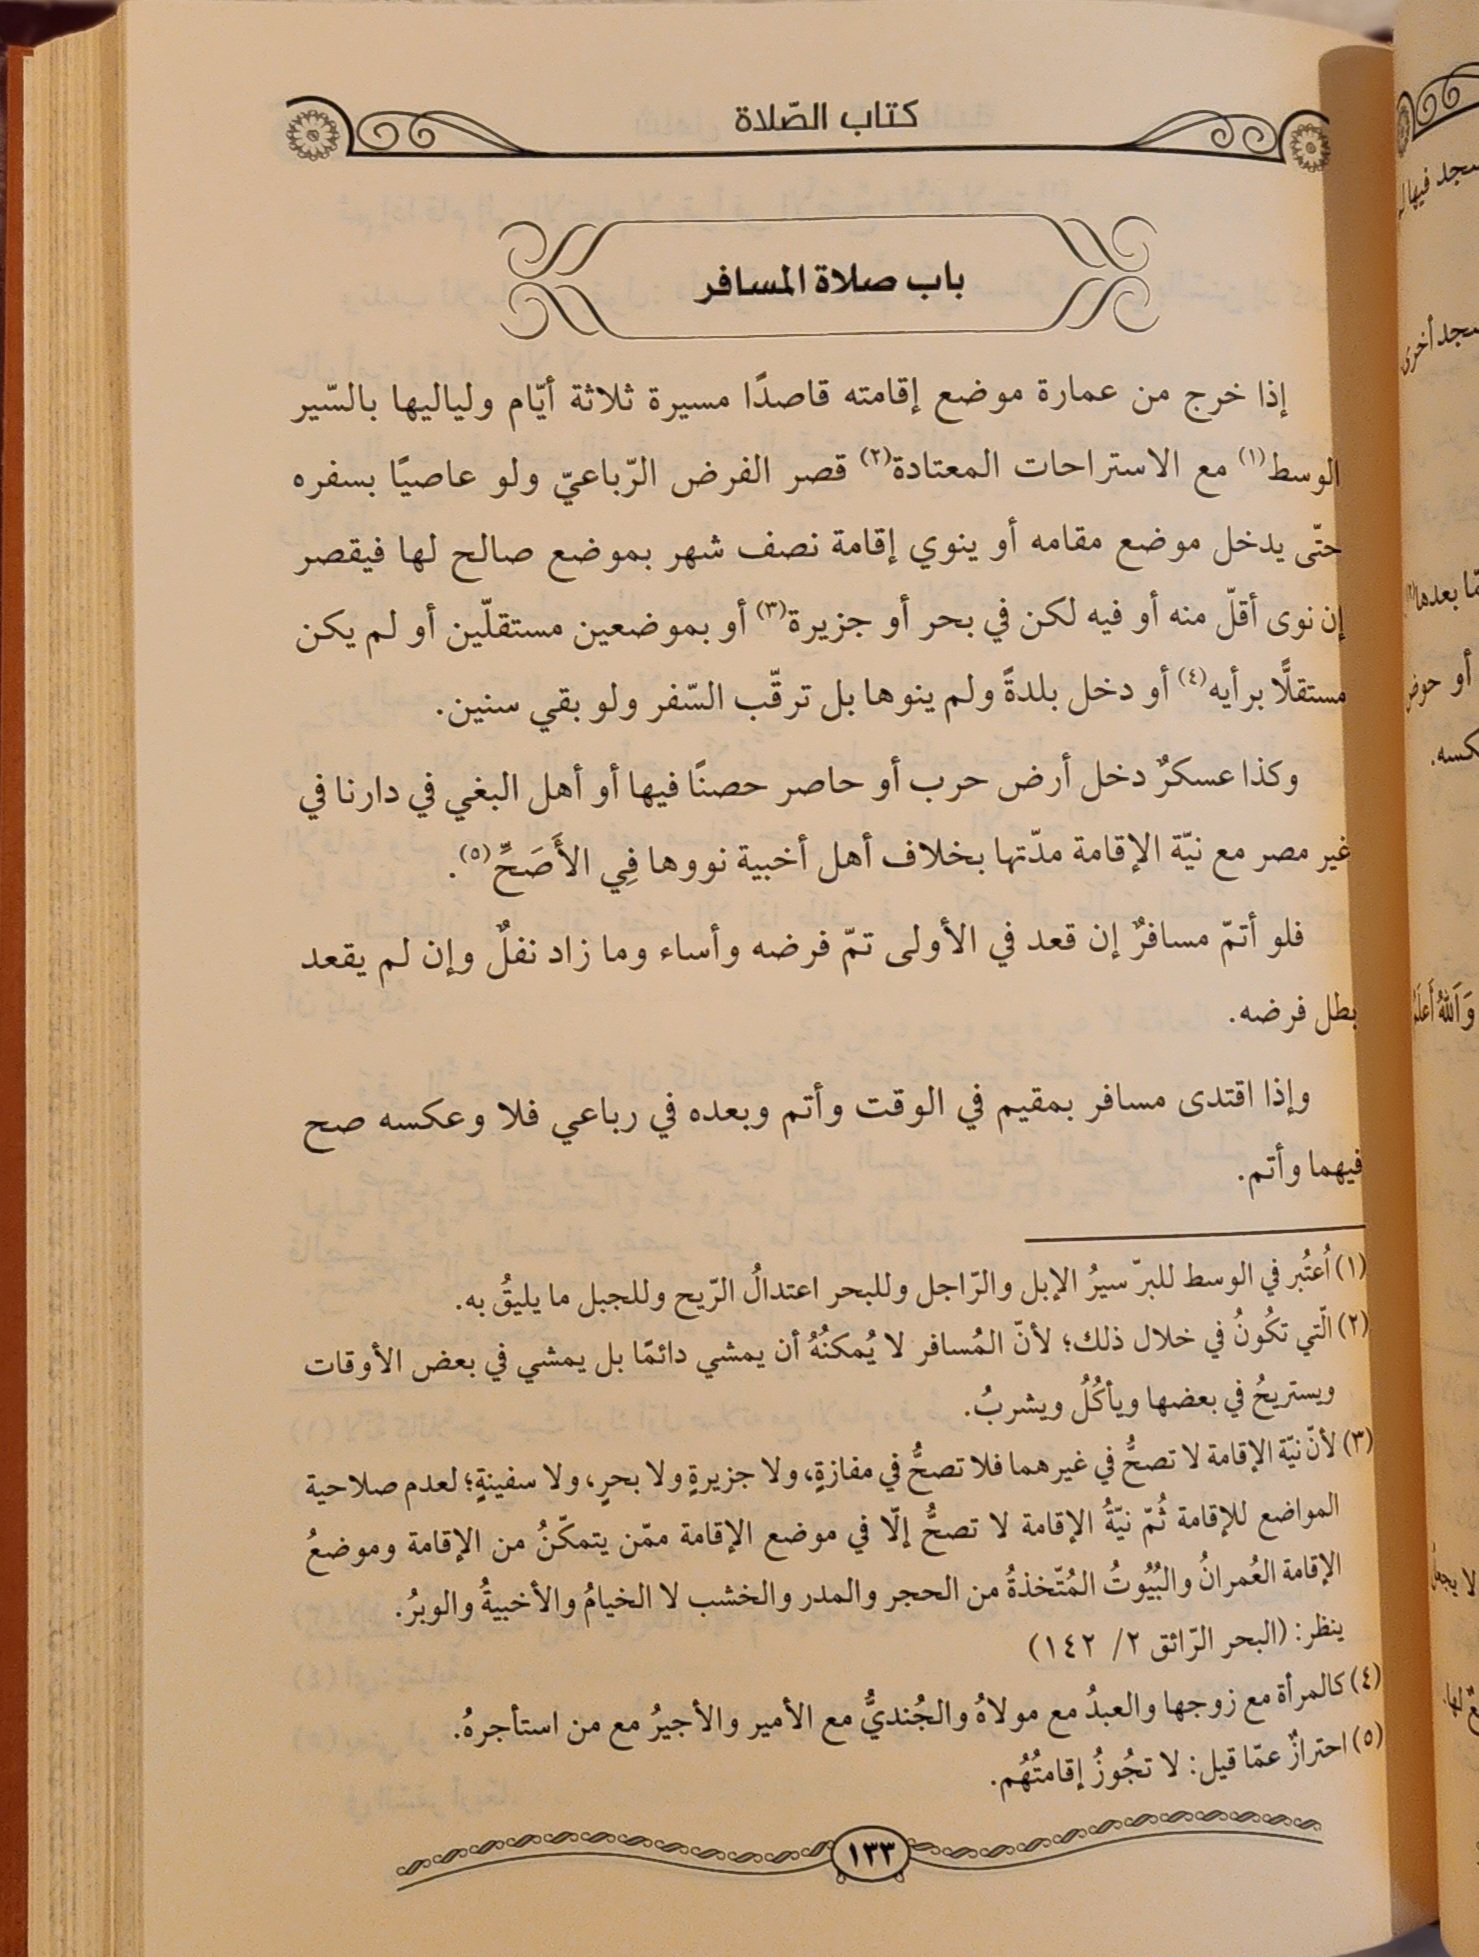 كتاب الصّلاة
باب صلاة المسافر
إذا خرج من عمارة موضع إقامته قاصدًا مسيرة ثلاثة أيّام ولياليها بالسّير
الوسط(١) مع الاستراحات المعتادة(٢) قصر الفرض الرّباعيّ ولو عاصيًا بسفره
حتّى يدخل موضع مقامه أو ينوي إقامة نصف شهر بموضع صالح لها فيقصر
إن نوى أقلّ منه أو فيه لكن في بحر أو جزيرة(٣) أو بموضعين مستقلّين أو لم يكن
مستقلًّا برأيه(٤) أو دخل بلدةً ولم ينوها بل ترقّب السّفر ولو بقي سنين.
وكذا عسكرٌ دخل أرض حرب أو حاصر حصنًا فيها أو أهل البغي في دارنا في
غير مصر مع نيّة الإقامة مدّتها بخلاف أهل أخبية نووها فِي الأَصَحِّ(٥).
فلو أتمّ مسافرٌ إن قعد في الأولى تمّ فرضه وأساء وما زاد نفلٌ وإن لم يقعد
بطل فرضه.
وإذا اقتدى مسافر بمقيم في الوقت وأتم وبعده في رباعي فلا وعكسه صح
فيهما وأتم.
(١) اُعتُبر في الوسط للبرّ سيرُ الإبل والرّاجل وللبحر اعتدالُ الرّيح وللجبل ما يليقُ به.
(٢) الّتي تكُونُ في خلال ذلك؛ لأنّ المُسافر لا يُمكنُهُ أن يمشي دائمًا بل يمشي في بعض الأوقات
ويستريحُ في بعضها ويأكُلُ ويشربُ.
(٣) لأنّ نيّة الإقامة لا تصحُّ في غيرهما فلا تصحُّ في مفازةٍ، ولا جزيرةٍ ولا بحرٍ، ولا سفينةٍ؛ لعدم صلاحية
المواضع للإقامة ثُمّ نيّةُ الإقامة لا تصحُّ إلّا في موضع الإقامة ممّن يتمكّنُ من الإقامة وموضعُ
الإقامة العُمرانُ والبُيُوتُ المُتّخذةُ من الحجر والمدر والخشب لا الخيامُ والأخبيةُ والوبرُ.
ينظر: (البحر الرّائق ٢/ ١٤٢)
(٤) كالمرأة مع زوجها والعبدُ مع مولاهُ والجُنديُّ مع الأمير والأجيرُ مع من استأجرهُ.
(٥) احترازٌ عمّا قيل: لا تجُوزُ إقامتُهُم.
١٣٣
سجد أخرى
أو حوض
وَاللهُ أَعلَمُ